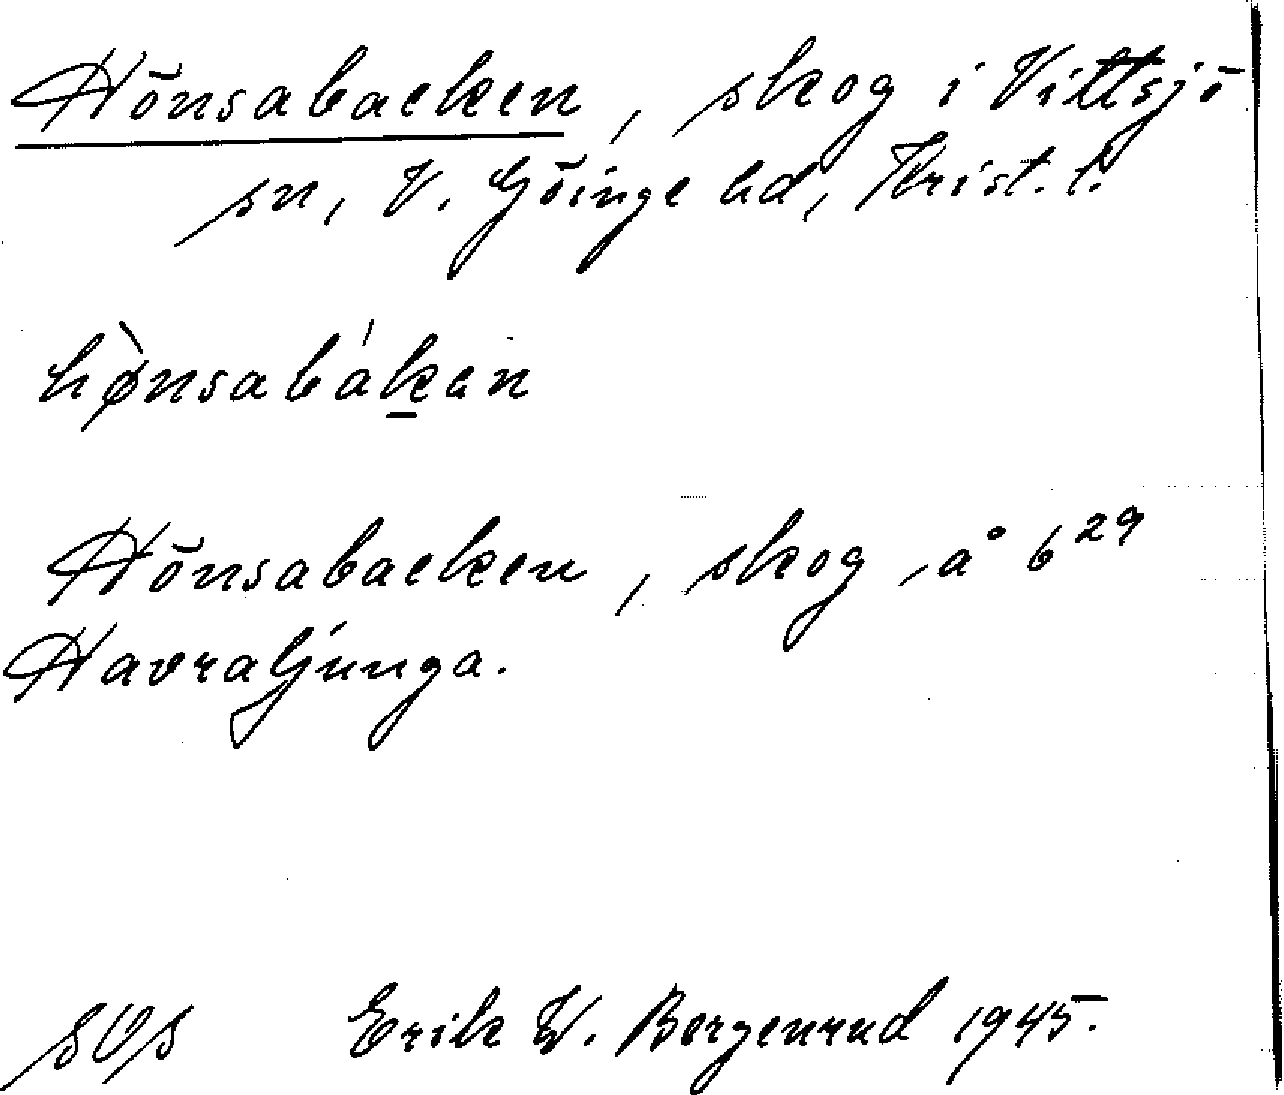 Hönsabacken, skog i Vittsjö
sn, V. Göinge hd, Krist. l.
hø̀nsabákan
Hönsabacken, skog å 6²⁹
Havraljunga.
SOS Erik W. Bergenrud 1945.